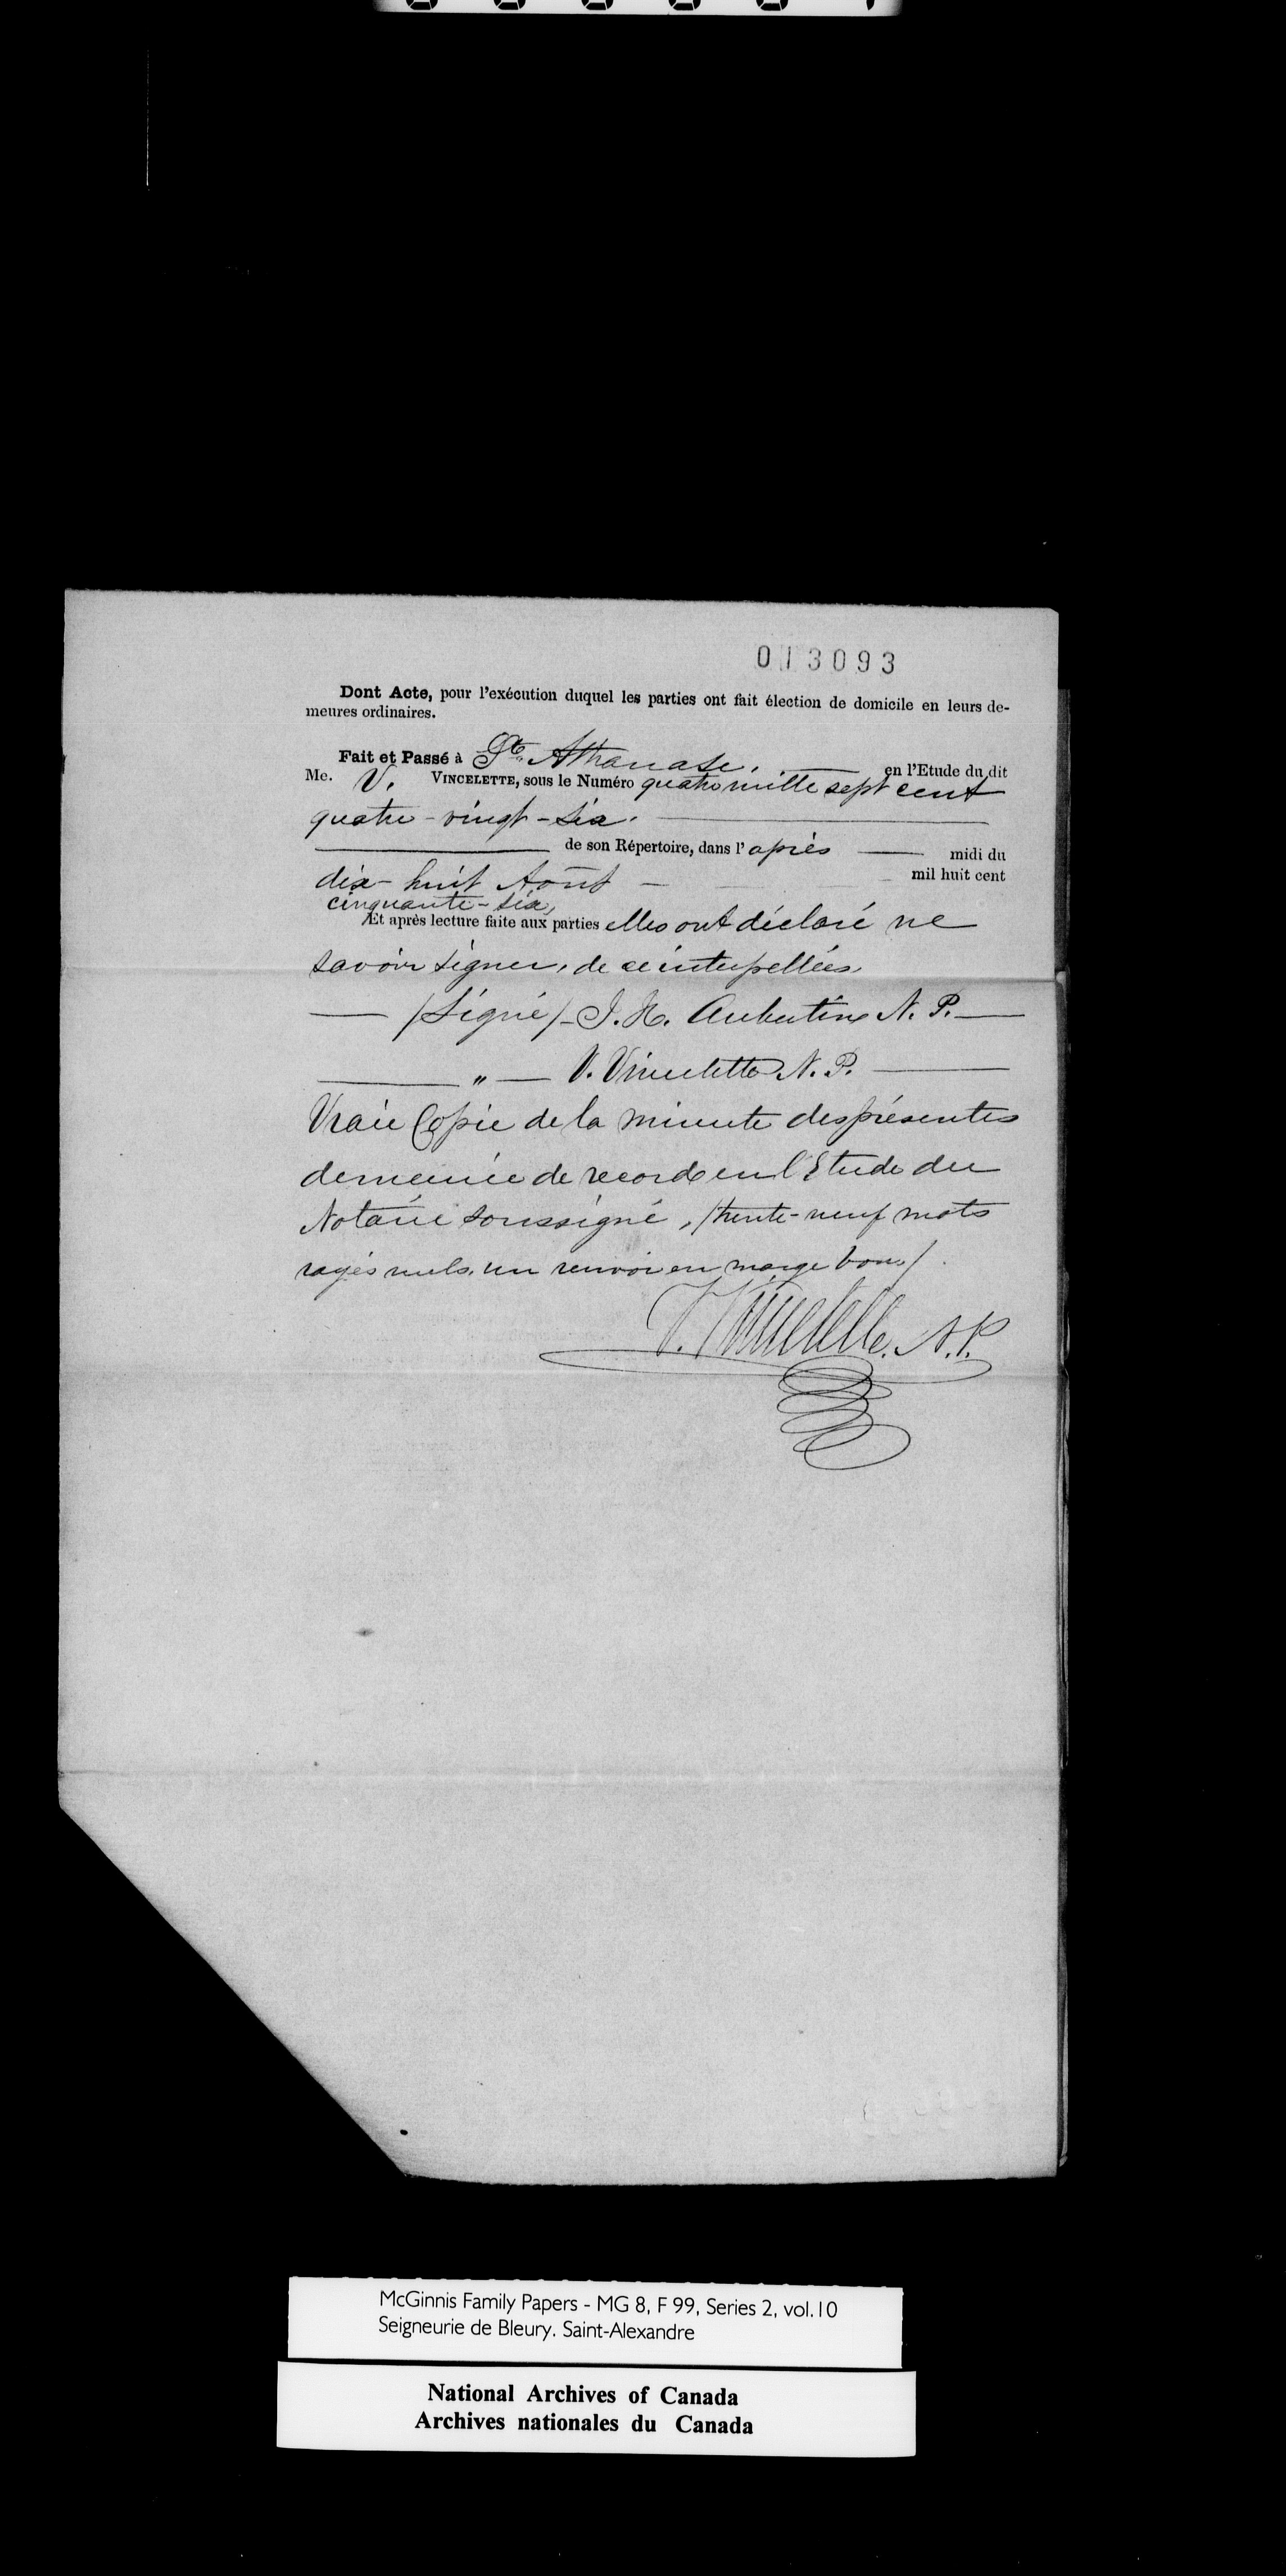 013093
Dont Acte, pour l'exécution duquel les parties ont fait élection de domicile en leurs de-
meures ordinaires.
Fait et Passé à St. Athanase. en l'Etude du dit
Me. V. VINCELETTE, sous le Numéro quatre mille sept cent
quatre-vingt-six.
de son Répertoire, dans l'après midi du
dix-huit Août mil huit cent
cinquante-six,
Et après lecture faite aux parties elles ont déclaré ne
savoir signer, de ce interpellées,
/Signé/ J. H. Aubertin N. P.
" V. Vincelette N. P.
Vraie Copie de la minute des présentes
demeurée de record en l'Etude du
Notaire soussigné, /trente-neuf mots
rayés nuls, un renvoi en marge bon/
V. Vincelette. N.P.
McGinnis Family Papers - MG 8, F 99, Series 2, vol.10
Seigneurie de Bleury. Saint-Alexandre
National Archives of Canada
Archives nationales du Canada